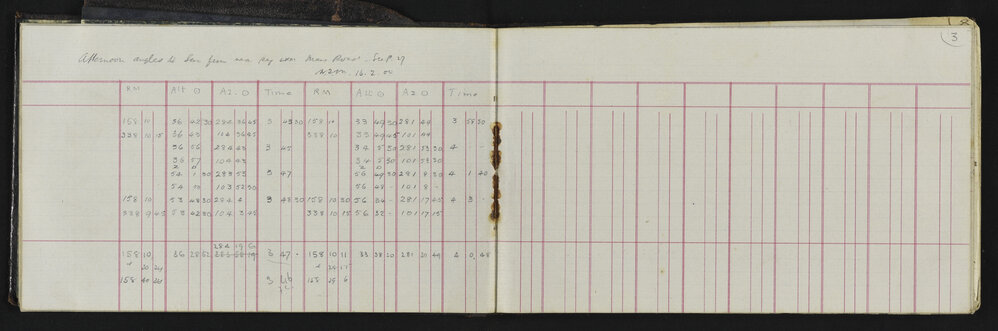 3
Afternoon angles to Sun from
16.2.00
RM Alt ⊙ Az ⊙ Time RM Alt ⊙ Az ⊙ Time
158 10 36 42 30 284 36 45 3 43 30 158 10 33 49 30 281 49 3 58 50
338 10 15 36 43 104 36 45 338 10 33 49 45 101 49
36 56 284 43 3 45 34 5 30 281 53 30 4 -
36 57 104 43 34 5 30 101 53 30
54 1 30 283 53 3 47 56 49 30 281 8 30 4 1 40
54 10 103 52 30 56 48 - 101 8 -
158 10 53 43 30 284 4 3 48 30 158 10 30 56 34 - 281 17 45 4 3 -
338 9 45 53 42 30 104 3 45 338 10 15 56 32 - 101 17 15
284 19 6
158 10 36 28 52 3 47 - 158 10 11 33 38 20 281 20 49 4 0 48
20 24
158 40 24 3 46 158 25 6